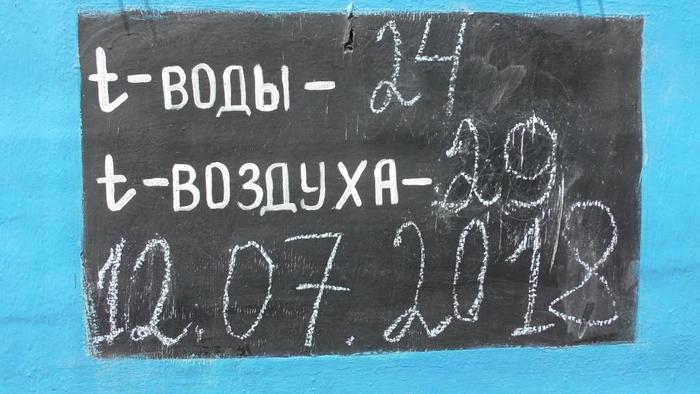 t-ВОДЫ- 24
t-ВОЗДУХА- 29
12.07.2018